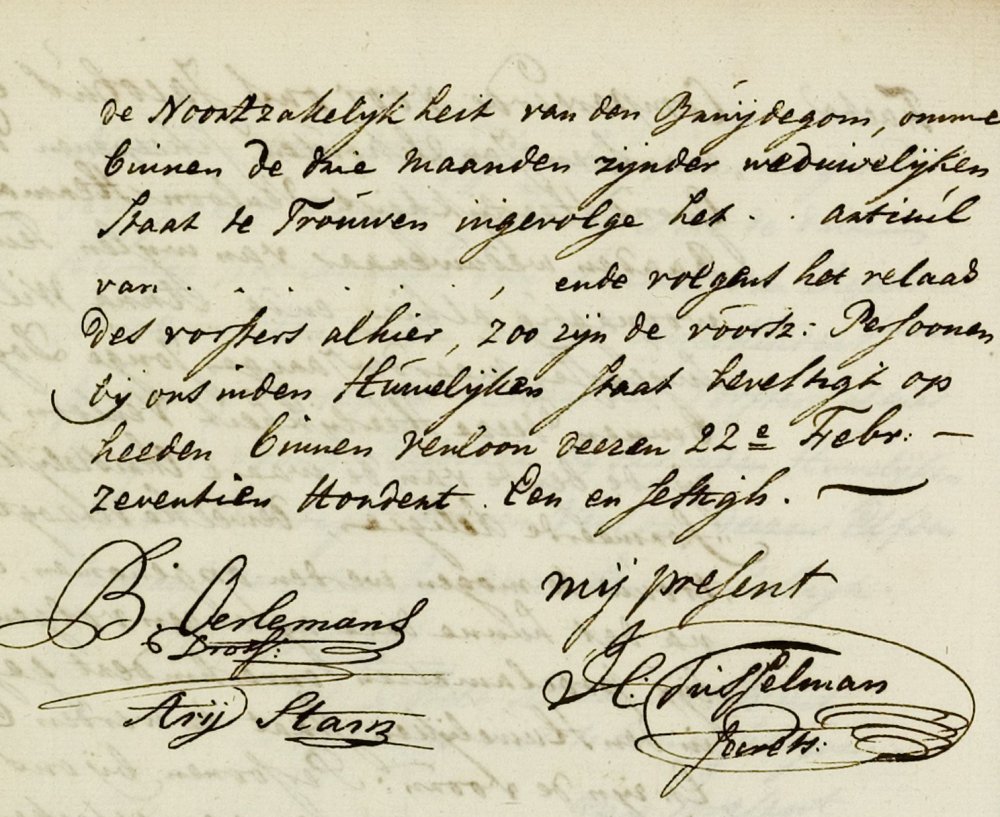 de Nootzakelijkheit van den Bruijdegom, omme
binnen de drie maanden zijnder weduwelijken
staat te Trouwen ingevolge het . . articul
van . . . . . . . , ende volgens het relaas
Des vorsters alhier, zoo zijn de voorsz: Persoonen
bij ons inden Huwelijken staat bevestigt op
heeden binnen venloon deezen 22e Febr: —
zeventien Hondert Een en sestigh. —
B. Oerlemans
Dross:
mij present
Arij Stam
H: Tusselman
Secrets: